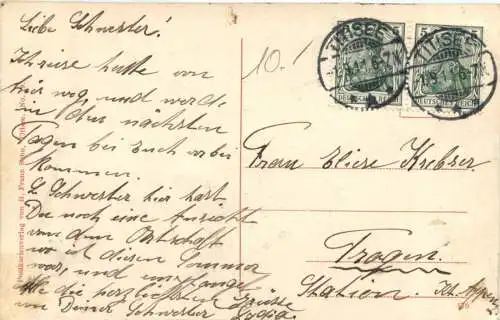 Liebe Schwester!
Ich reise heute von
hier weg, und werde
in den nächsten
Tagen bei Euch vorbei
kommen.
L. Schwester hier hast
Du noch eine Ansicht
von dem Ortschaft
wo ich diesen Sommer
war, und
alle die herzlichsten Grüsse
von Deiner Schwester Lydia.
10.!
TITISEE
TITISEE
5
5
DEUTSCHES REICH
DEUTSCHES REICH
Frau Elise Krebser
Trogen.
Station. Kt. Appen
Postkartenverlag von H. Franz